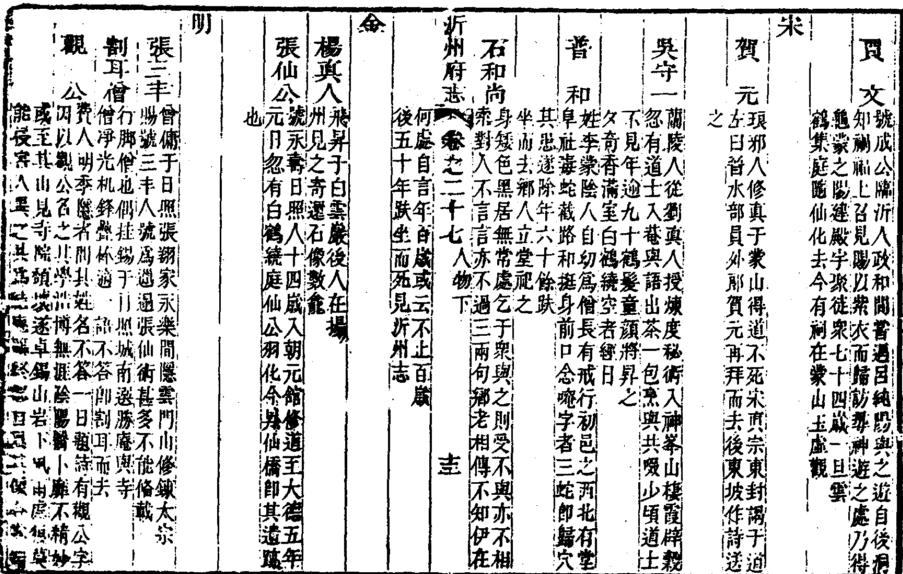 賈文
號成公臨沂人政和間嘗遇呂純陽與之遊自後洞
知禍福上召見賜以紫衣而歸訪尋神遊之處乃得
龜蒙之陽建殿宇聚徒衆七十四歲一旦雲
鶴集庭隨仙化去今有祠在蒙山玉虛觀
宋
賀元
琅邪人修真于蒙山得道不死宋真宗東封謁于道
左曰晉水部員外郎賀元再拜而去後東坡作詩送
之
吳守一
蘭陵人從劉真人授煉度秘術入神峯山棲霞辟穀
忽有道士入菴與語出茶一包烹與共啜少頃道士
不見年逾九十鶴髮童顔將昇之
夕奇香滿室白鶴繞空者經日
普和
姓李蒙陰人自幼爲僧長有戒行初邑之西北有堂
阜社毒蛇截路和挺身前口念唵字者三蛇卽歸穴
其患遂除年六十餘趺
坐而去鄉人立堂祀之
石和尚
身矮色黑居無常處乞于衆與之則受不與亦不相
索對人不言言亦不過三兩句鄉老相傳不知伊在
沂州府志
卷之二十七
人物下
何處自言年百歲或云不止百歲
後五十年趺坐而死見沂州志
金
楊真人
飛昇于白雲巖後人在塲
州見之寄還石像數龕
張仙公
號永壽日照人十四歲入朝元館修道至大德五年
元日忽有白鶴繞庭仙公羽化今縣仙橋卽其遺蹟
也
明
張三丰
曾傭于日照張翊家永樂間隱雲門山修鍊太宗
賜號三丰人號爲邋遢張仙術甚多不能俻載
割耳僧
行脚僧也偶挂錫于日照城南邊勝庵與寺
僧淨光机鋒 答卽割耳而去
觀公
費人明季隱者問其姓名不答一日題詩有觀公字
因以觀公名之其學 博無涯陰陽醫卜靡不精妙
或至某山見寺院頹 遂卓錫山岩下
能侵害人異之